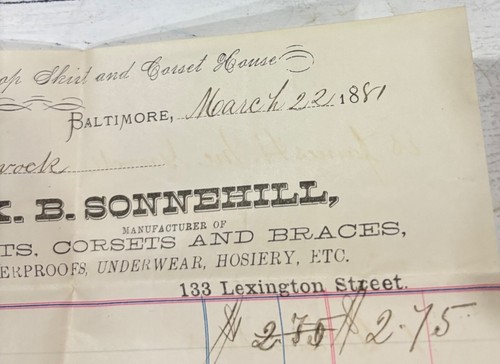 op Skirt and Corset House
BALTIMORE, March 22 1881
wock
K. B. SONNEHILL,
MANUFACTURER OF
TS, CORSETS AND BRACES,
ERPROOFS, UNDERWEAR, HOSIERY, ETC.
133 Lexington Street.
$ 2.75 $ 2.75